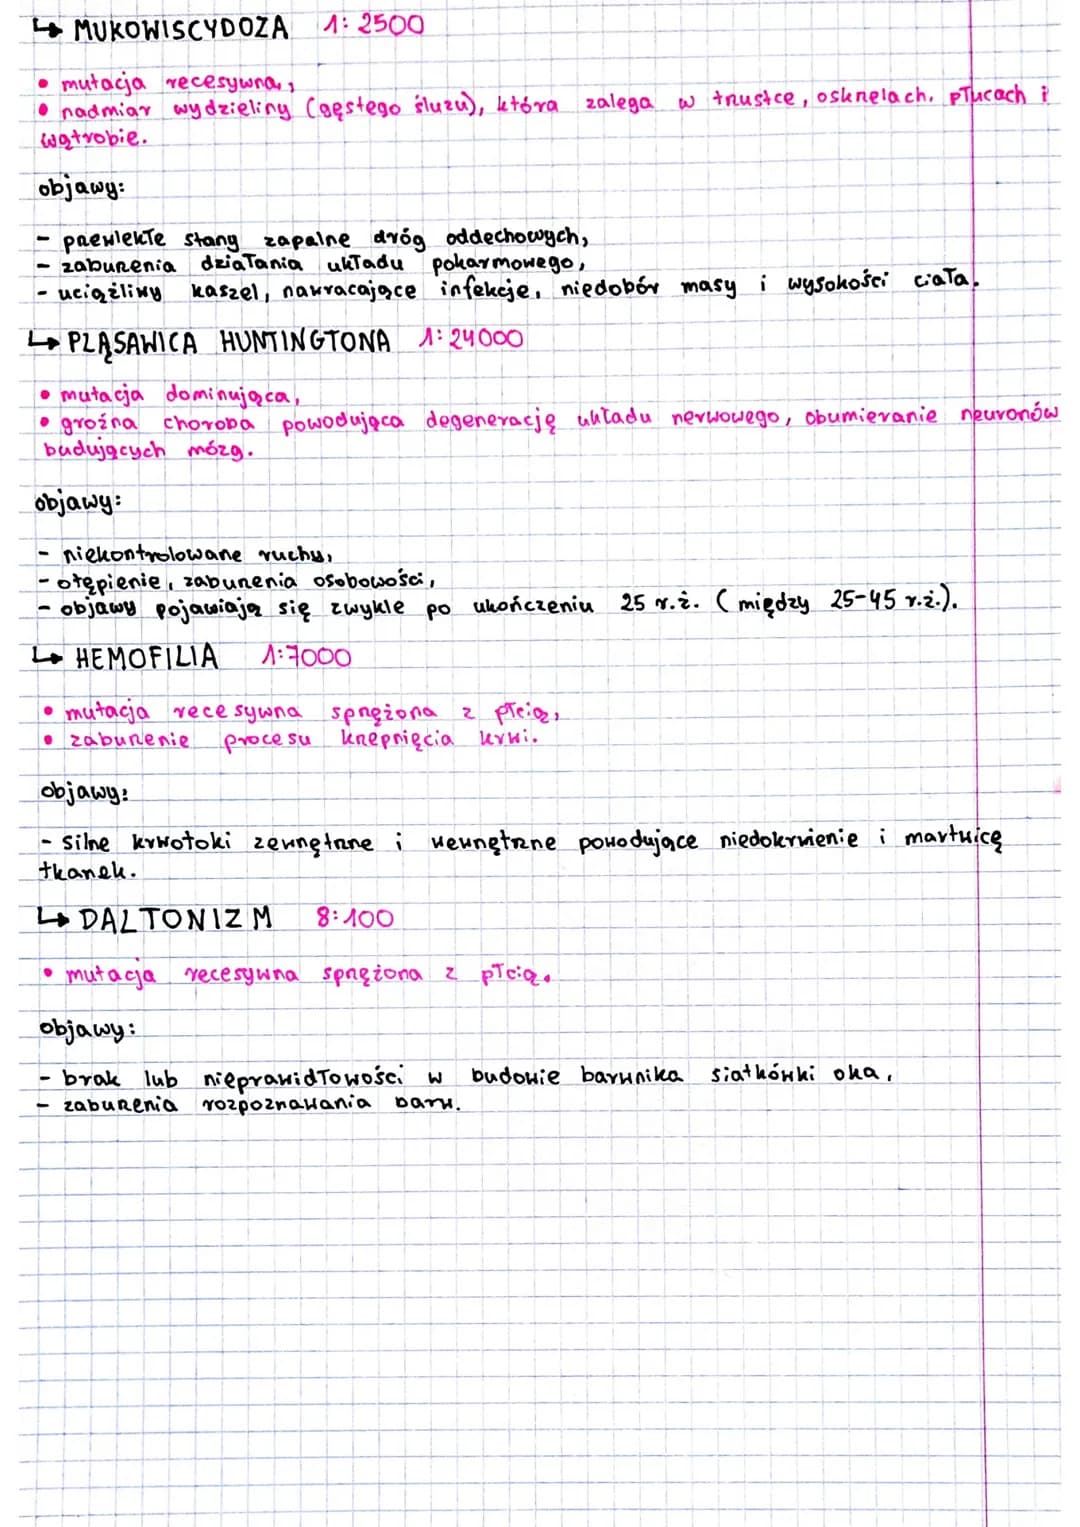 ↳ MUKOWISCYDOZA 1:2500
• mutacja recesywna,
• nadmiar wydzieliny (gęstego śluzu), która zalega w trzustce, oskrzelach, płucach i
wątrobie.
objawy:
- przewlekłe stany zapalne dróg oddechowych,
- zaburzenia działania układu pokarmowego,
- uciążliwy kaszel, nawracające infekcje, niedobór masy i wysokości ciała.
↳ PLĄSAWICA HUNTINGTONA 1:24000
• mutacja dominująca,
• groźna choroba powodująca degenerację układu nerwowego, obumieranie neuronów
budujących mózg.
objawy:
- niekontrolowane ruchy,
- otępienie, zaburzenia osobowości,
- objawy pojawiają się zwykle po ukończeniu 25 r.ż. (między 25-45 r.ż.).
↳ HEMOFILIA 1:7000
• mutacja recesywna sprzężona z płcią,
• zaburzenie procesu krzepnięcia krwi.
objawy:
- silne krwotoki zewnętrzne i wewnętrzne powodujące niedokrwienie i martwicę
tkanek.
↳ DALTONIZM 8:100
• mutacja recesywna sprzężona z płcią.
objawy:
- brak lub nieprawidłowości w budowie barwnika siatkówki oka,
- zaburzenia rozpoznawania barw.